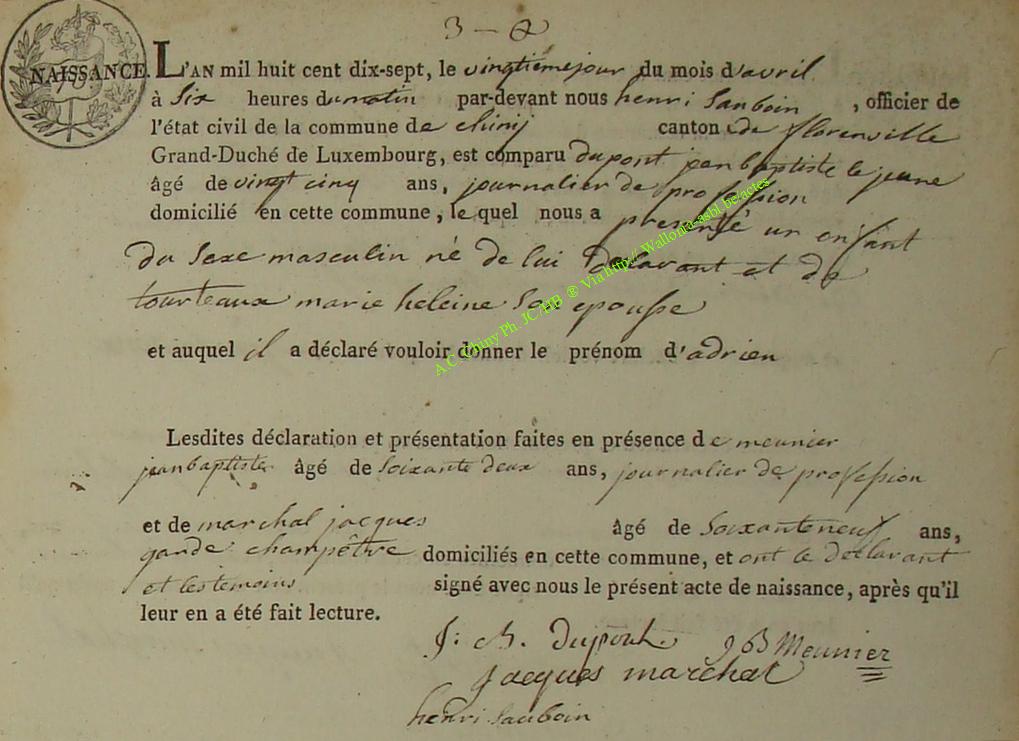 3 - Q
NAISSANCE. L'AN mil huit cent dix-sept, le vingtieme jour du mois d'avril
à Six heures du matin par-devant nous henri Sauboin , officier de
l'état civil de la commune de chinij canton de florenville
Grand-Duché de Luxembourg, est comparu dupont jean baptiste le jeune
âgé de vingt cinq ans, journalier de profession
domicilié en cette commune, le quel nous a presenté un enfant
du Sexe masculin né de lui declarant et de
tourteaux marie heleine Son epousse
et auquel il a déclaré vouloir donner le prénom d'adrien
Lesdites déclaration et présentation faites en présence de meunier
jean baptiste âgé de Soixante deux ans, journalier de profession
et de marchal jacques âgé de Soixante neuf ans,
garde champêtre domiciliés en cette commune, et ont le declarant
et les temoins signé avec nous le présent acte de naissance, après qu'il
leur en a été fait lecture.
J: B. Dupont J B Meunier
jacques marchal
henri Sauboin
A.C. Chiny Ph. JC/HB ® Via http://Wallonia-asbl.be/actes